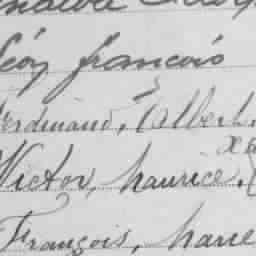 Léon françois
Ferdinand, Albert.
Victor, Maurice.
François, Marie